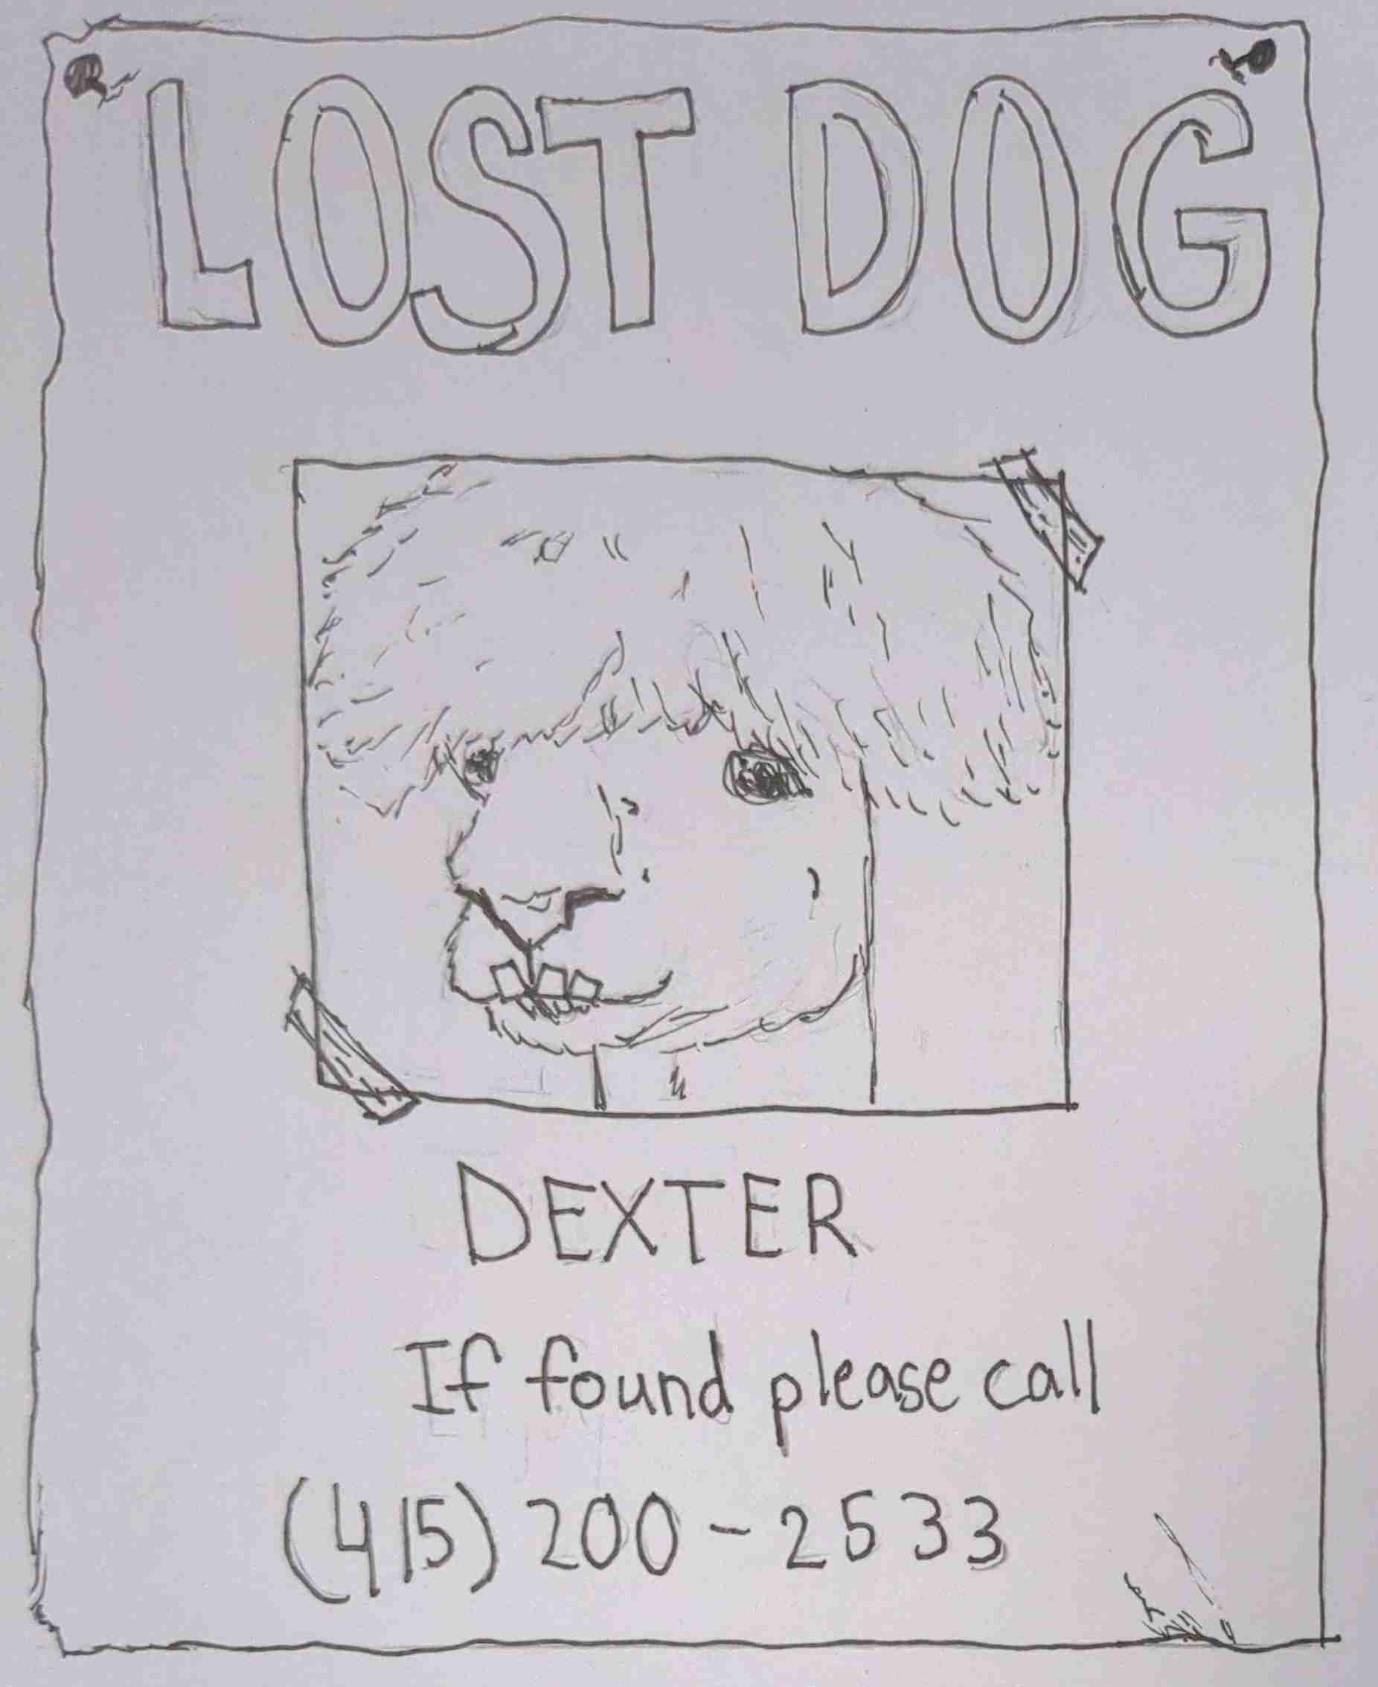 LOST DOG
DEXTER
If found please call
(415) 200-2533